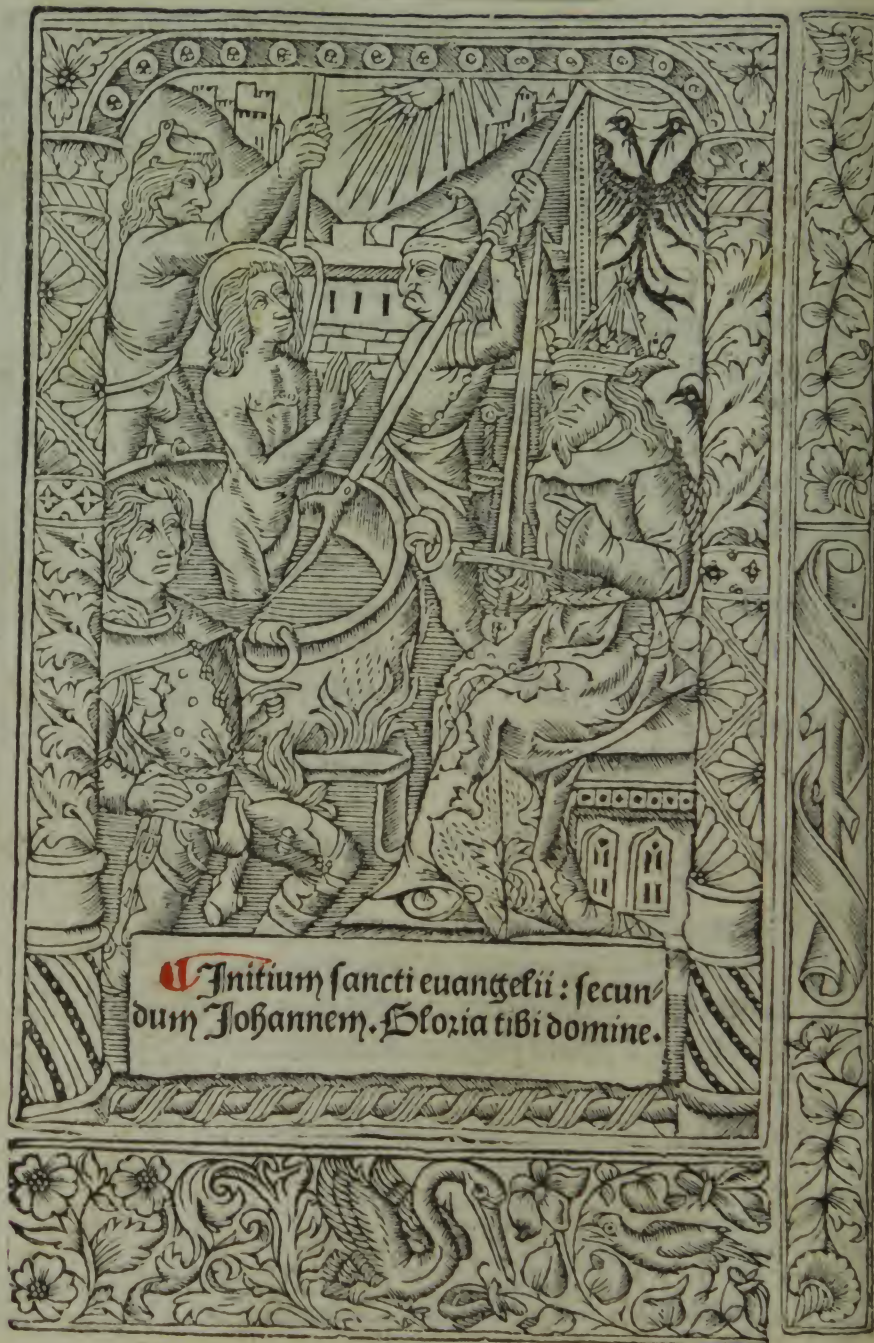 ¶ Initium sancti euangelii : secun⸗
dum Johannem. Gloria tibi domine.